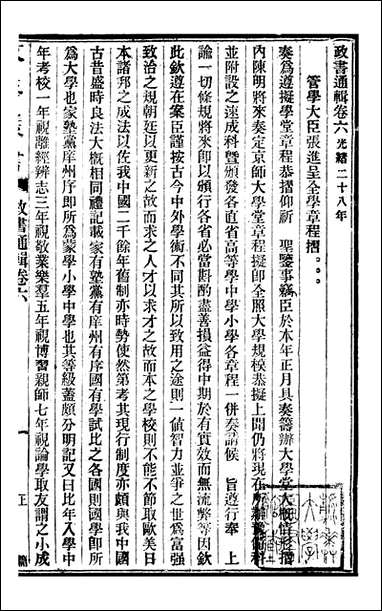 政書通輯卷六 光緒二十八年
管學大臣張進呈全學章程摺
奏爲遵擬學堂章程恭摺仰祈　聖鑒事竊臣於本年正月具奏籌辦大學堂大概情形摺
內陳明將來奏定京師大學堂章程擬卽全照大學規模恭擬上聞仍將現在所辦豫備科
並附設之速成科暨頒發各直省高等學中學小學各章程一併奏請候　旨遵行奉　上
諭一切條規將來卽以頒行各省必當斟酌盡善損益得中期於有實效而無流弊等因欽
此欽遵在案臣謹按古今中外學術不同其所以致用之途則一値智力並爭之世爲富強
致治之規朝廷以更新之故而求之人才以求才之故而本之學校則不能不節取歐美日
本諸邦之成法以佐我中國二千餘年舊制亦時勢使然第考其現行制度亦頗與我中國
古昔盛時良法大概相同禮記載家有塾黨有庠州有序國有學試比之各國則國學卽所
爲大學也家塾黨庠州序卽所爲蒙學小學中學也其等級蓋頗分明記又曰比年入學中
年考校一年視離經辨志三年視敬業樂羣五年視博習親師七年視論學取友謂之小成
政書通輯卷六
一